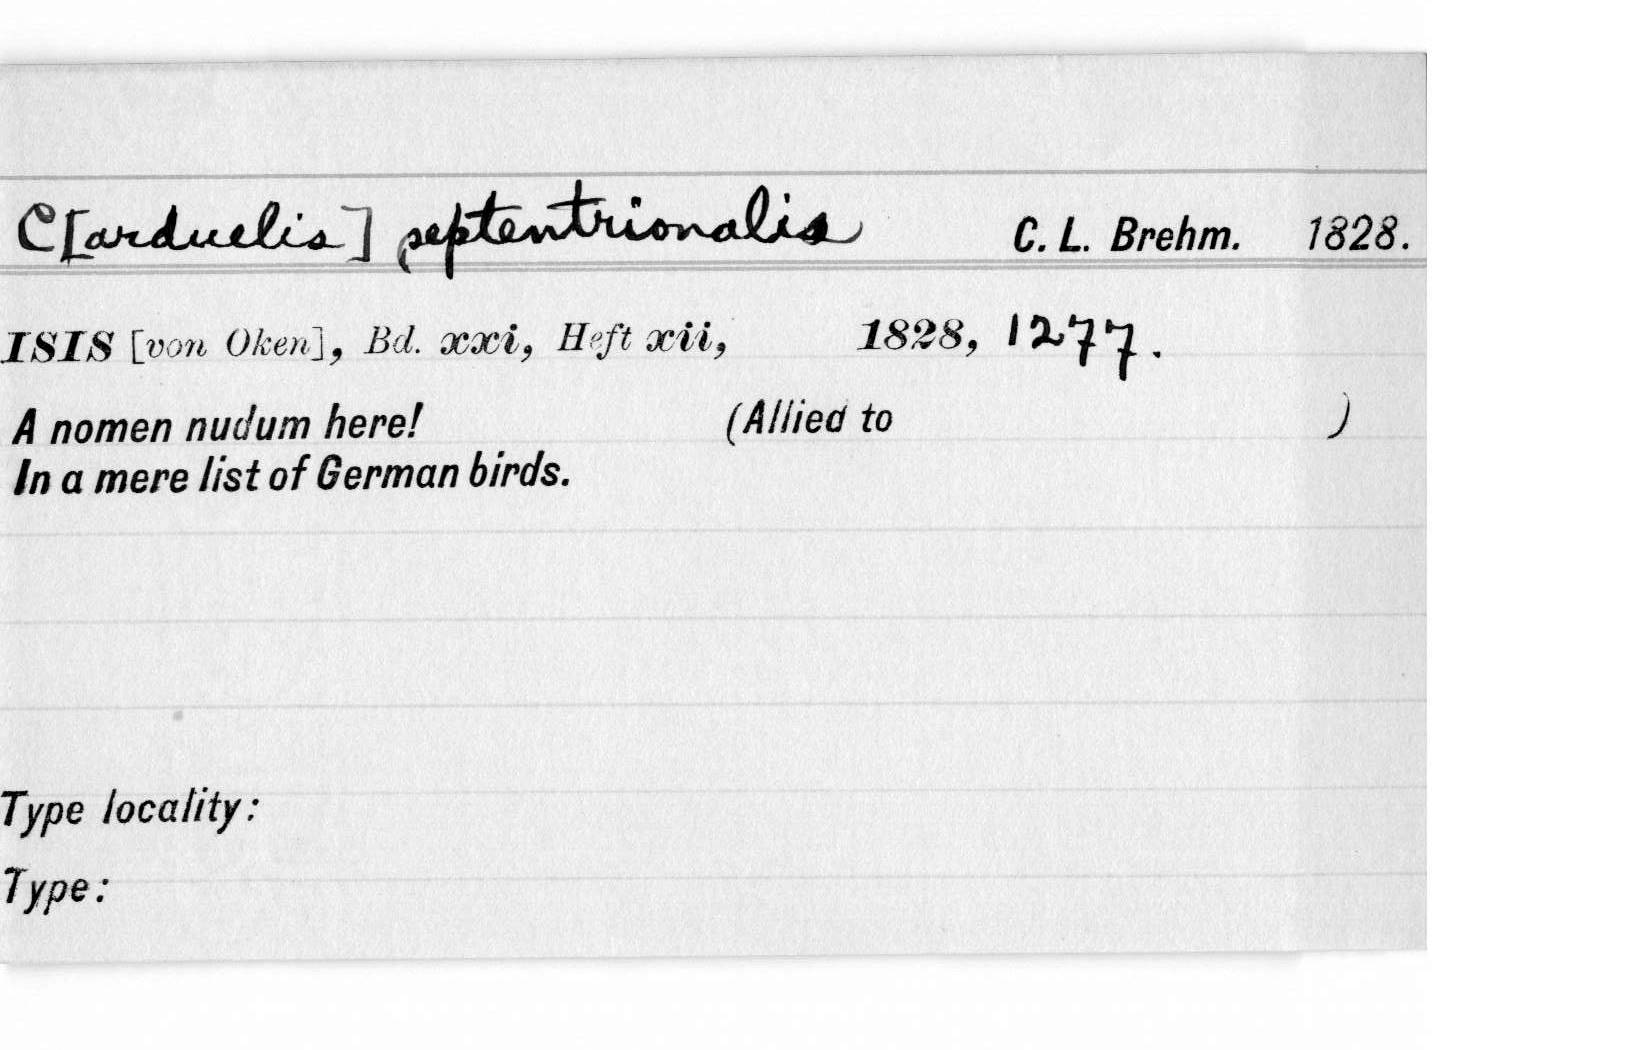 C[arduelis] septentrionalis C. L. Brehm. 1828.
ISIS [von Oken], Bd. xxi, Heft xii, 1828, 1277.
A nomen nudum here! (Allied to )
In a mere list of German birds.
Type locality:
Type: